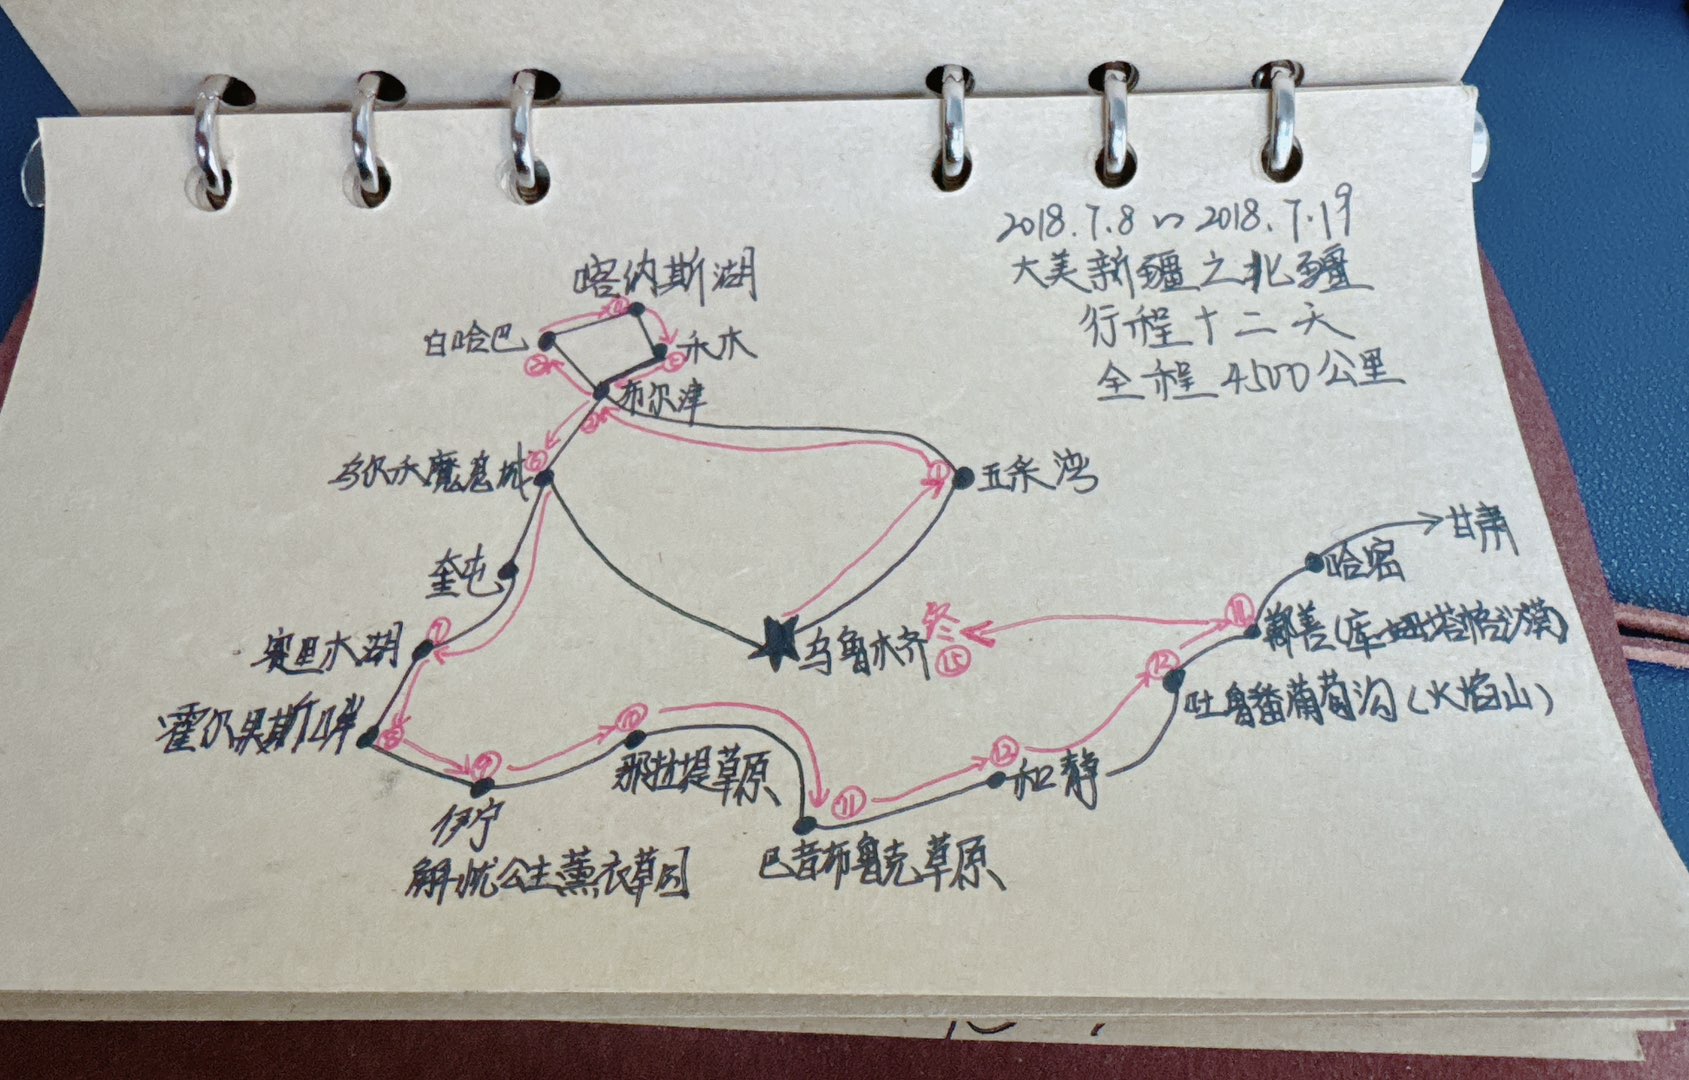 2018.7.8~2018.7.19
大美新疆之北疆
行程十二天
全程4500公里
喀纳斯湖
白哈巴
禾木
布尔津
乌尔禾魔鬼城
五条湾
奎屯
甘肃
哈密
赛里木湖
乌鲁木齐
终
⑮
鄯善(库木塔格沙漠)
吐鲁番葡萄沟(火焰山)
霍尔果斯口岸
那拉提草原
和静
伊宁
解忧公主薰衣草园
巴音布鲁克草原
①
②
⑥
⑦
⑧
⑨
⑩
⑪
⑫